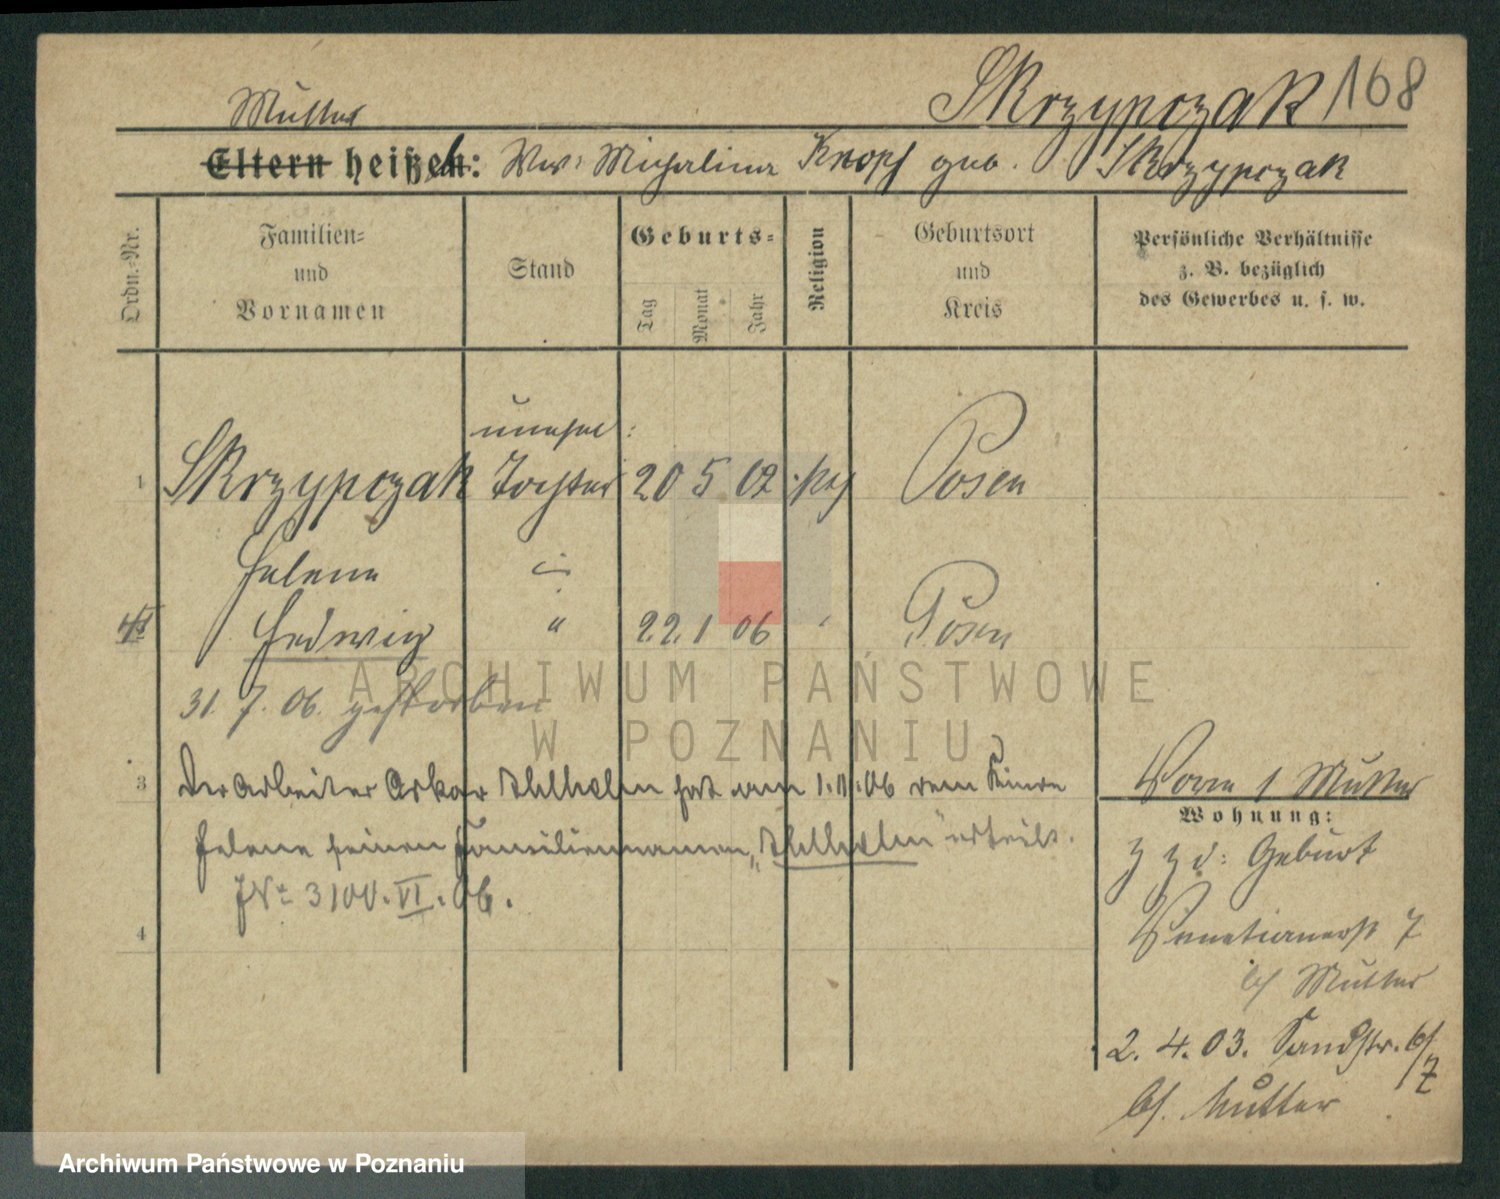 Skrzypczak 168
Mutter
Eltern heißen: Ww: Michalina Knopf geb. Skrzypczak
Ordn.-Nr.
Familien-
und
Vornamen
Stand
Geburts-
Tag
Monat
Jahr
Religion
Geburtsort
und
Kreis
Persönliche Verhältnisse
z. B. bezüglich
des Gewerbes u. s. w.
unehel:
1 Skrzypczak Tochter 20 5 02 Posen
Helene
Hedwig " 22. 1 06 Posen
31. 7. 06. gestorben
3 Der Arbeiter Oskar hat am 1.11.06 dem Kinde
Helene seinen Familiennamen " " erteilt.
JNr 3100. VI. 06.
4
Mutter
Wohnung:
z z d: Geburt
Venetianerstr 7
bei Mutter
2. 4. 03. Sandstr. 6/7
bei Mutter
ARCHIWUM PAŃSTWOWE
W POZNANIU
Archiwum Państwowe w Poznaniu